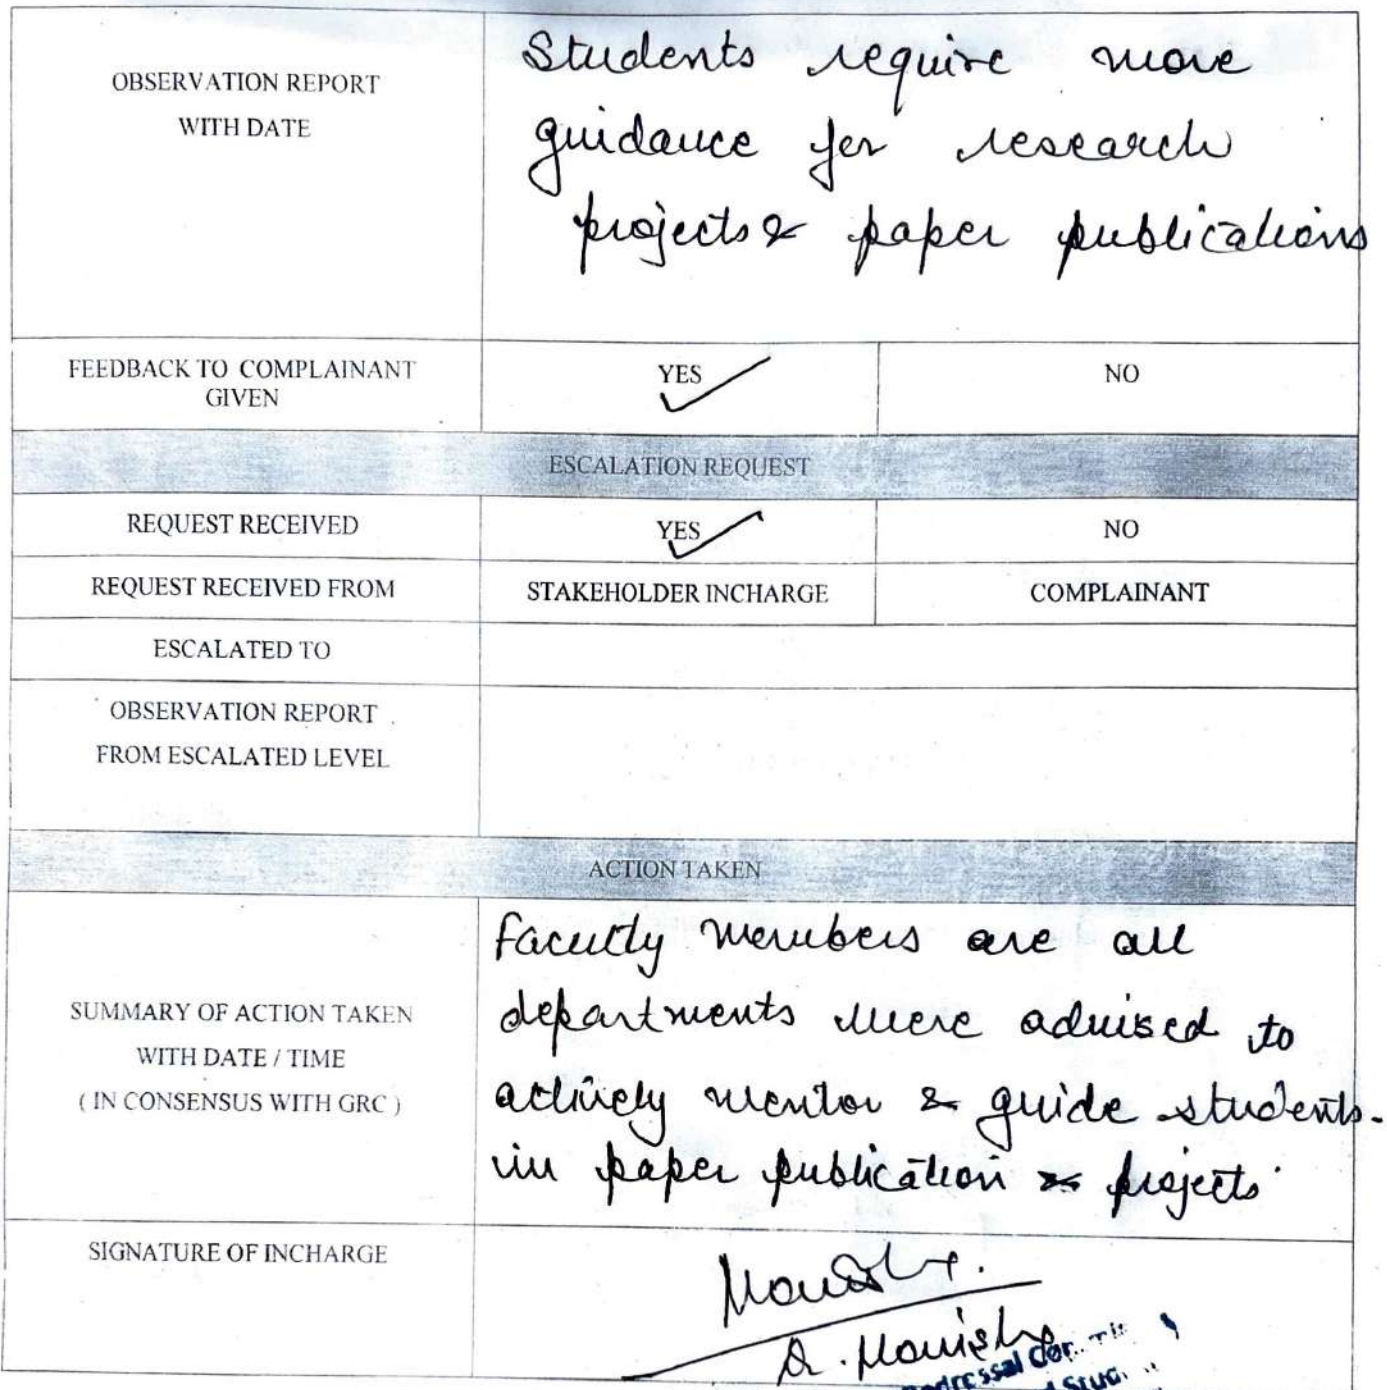 OBSERVATION REPORT
WITH DATE
Students require more
guidance for research
projects & paper publications
FEEDBACK TO COMPLAINANT
GIVEN
YES
NO
ESCALATION REQUEST
REQUEST RECEIVED
YES
NO
REQUEST RECEIVED FROM
STAKEHOLDER INCHARGE
COMPLAINANT
ESCALATED TO
OBSERVATION REPORT
FROM ESCALATED LEVEL
ACTION TAKEN
SUMMARY OF ACTION TAKEN
WITH DATE / TIME
( IN CONSENSUS WITH GRC )
Faculty members are all
departments were advised to
actively mentor & guide students.
in paper publication & projects.
SIGNATURE OF INCHARGE